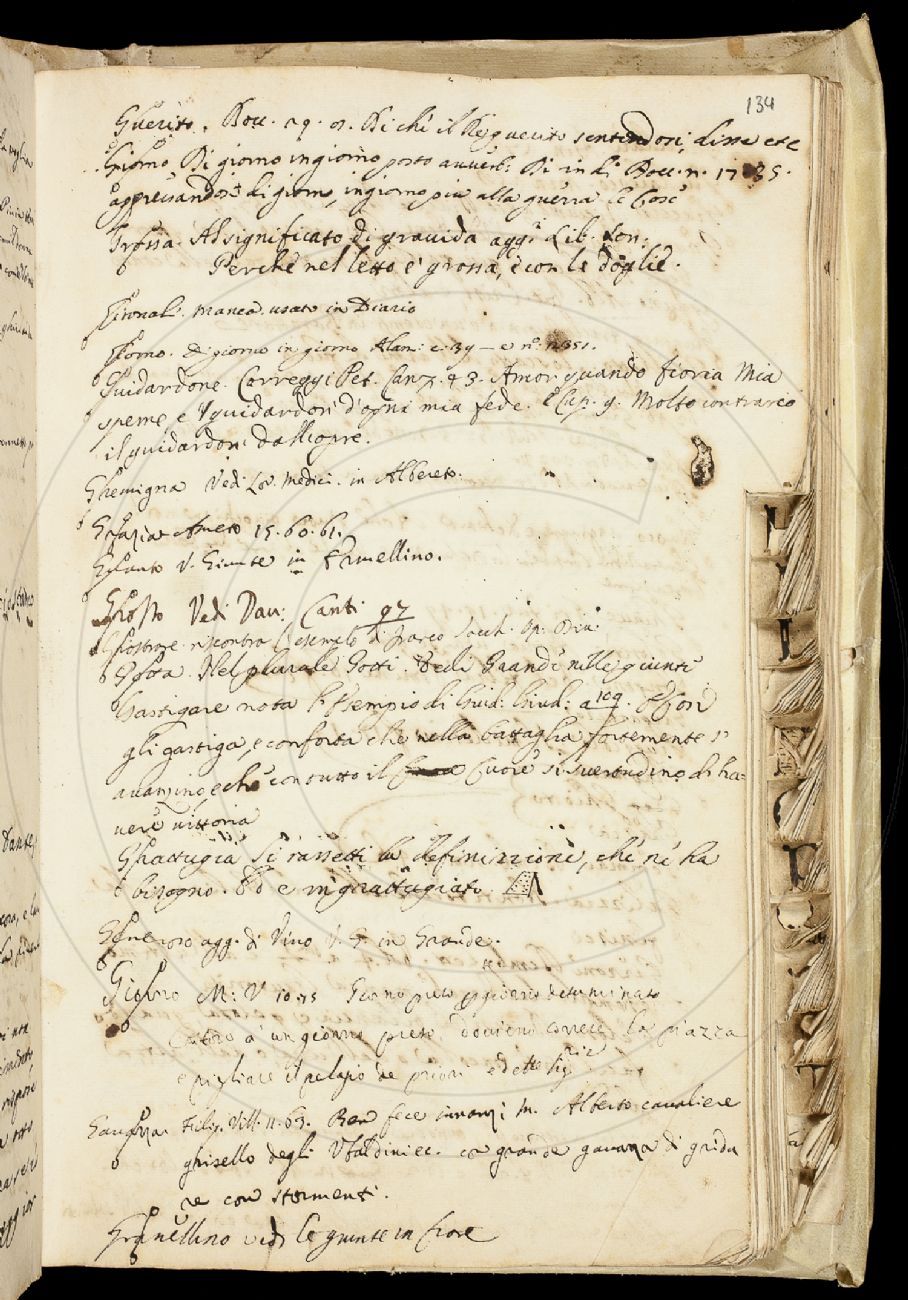 134
Guerito. Bocc. 29. Di che il Re guerito sentendosi, disse etc
Giorno Di giorno in giorno posto avverb: Di in dì Bocc. n. 17 35.
appressandosi di giorno, in giorno più alla guerra le cose
Grossa. Al significato di gravida agg: Lib. Son:
Perchè nel letto è grossa, è con le doglie.
Giornal. manca. usato in Diario
Giorno. di giorno in giorno Alam: c. 39 — e nº.
Guidardone. Correggi Pet. Canz. 43. Amor quando fioria Mia
speme, e 'l guidardon d'ogni mia fede. e Cap. 9. Molto contrario
il guidardon dall'opre.
Ghemigna Vedi Lor. Medici. in Albereto.
Grazia Ameto 15. 60. 61.
V. Giunte in Armellino.
Ghosto Vedi Dav: Canti 97
riscontra l'esempio di Franco Sacch. Op. Div:
Gota. Nel plurale Goti. Vedi Grandi nelle giunte
Gastigare nota l'Esempio di Guid: Giud: a 109. Ettor
gli gastiga, e conforta che nella battaglia fortemente s'
avanzino, e che con tutto il Cuore si di ha=
vere vittoria
Grattugia Si rassetti la definizzione, che ne ha
bisogno. Ed è in grattugiato.
Generoso agg. di Vino V. G. in Grande.
Giorno M: V 10. 75 Giorno preso p giorno determinato
a un giorno preso doveano correre la piazza
e pigliare il palagio de priori e dette sig:rie
Gavazza Filip. Vill. 11. 63. fece innanzi M. Alberto cavaliere
ghisello degli Ubaldini ec. con grande gavazza di grida
re con stormenti.
Granellino vedi le giunte in fiore